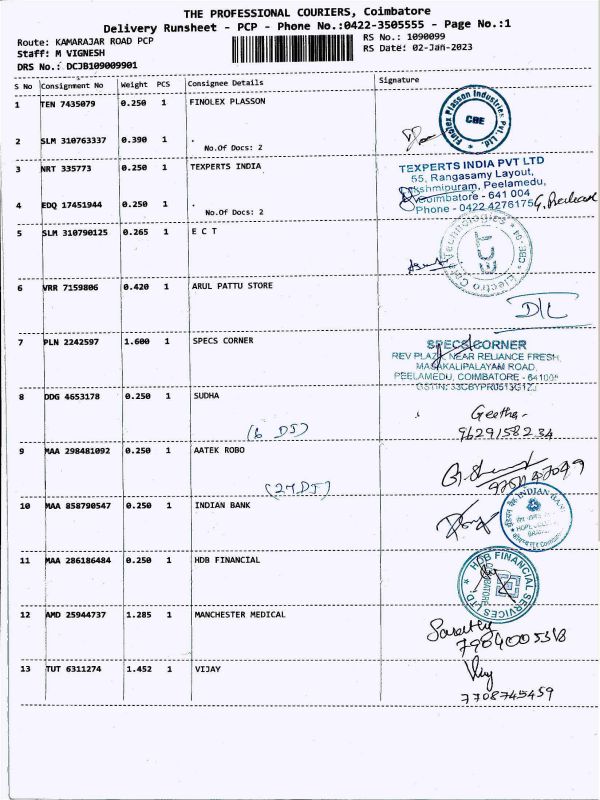 THE PROFESSIONAL COURIERS, Coimbatore
Delivery Runsheet - PCP - Phone No.:0422-3505555 - Page No.:1
Route: KAMARAJAR ROAD PCP
RS No.: 1090099
Staff: M VIGNESH
RS Date: 02-Jan-2023
DRS No.: DCJB109009901
S No Consignment No Weight PCS Consignee Details Signature
1 TEN 7435079 0.250 1 FINOLEX PLASSON
Finolex Plasson Industries Pvt. Ltd.
CBE
2 SLM 310763337 0.390 1 .
No.Of Docs: 2
3 NRT 335773 0.250 1 TEXPERTS INDIA
TEXPERTS INDIA PVT LTD
55, Rangasamy Layout,
Lakshmipuram, Peelamedu,
Coimbatore - 641 004
Phone - 0422 4276175
4 EDQ 17451944 0.250 1 .
No.Of Docs: 2
5 SLM 310790125 0.265 1 E C T
6 VRR 7159806 0.420 1 ARUL PATTU STORE
D/L
7 PLN 2242597 1.600 1 SPECS CORNER
SPECS CORNER
REV PLAZA, NEAR RELIANCE FRESH,
MASAKALIPALAYAM ROAD,
PEELAMEDU, COIMBATORE - 641004
8 DDG 4653178 0.250 1 SUDHA
Geetha
9629158234
9 MAA 298481092 0.250 1 AATEK ROBO
10 MAA 858790547 0.250 1 INDIAN BANK
INDIAN BANK
11 MAA 286186484 0.250 1 HDB FINANCIAL
HDB FINANCIAL SERVICES LTD
COIMBATORE
12 AMD 25944737 1.285 1 MANCHESTER MEDICAL
13 TUT 6311274 1.452 1 VIJAY
Vijay
7708745459